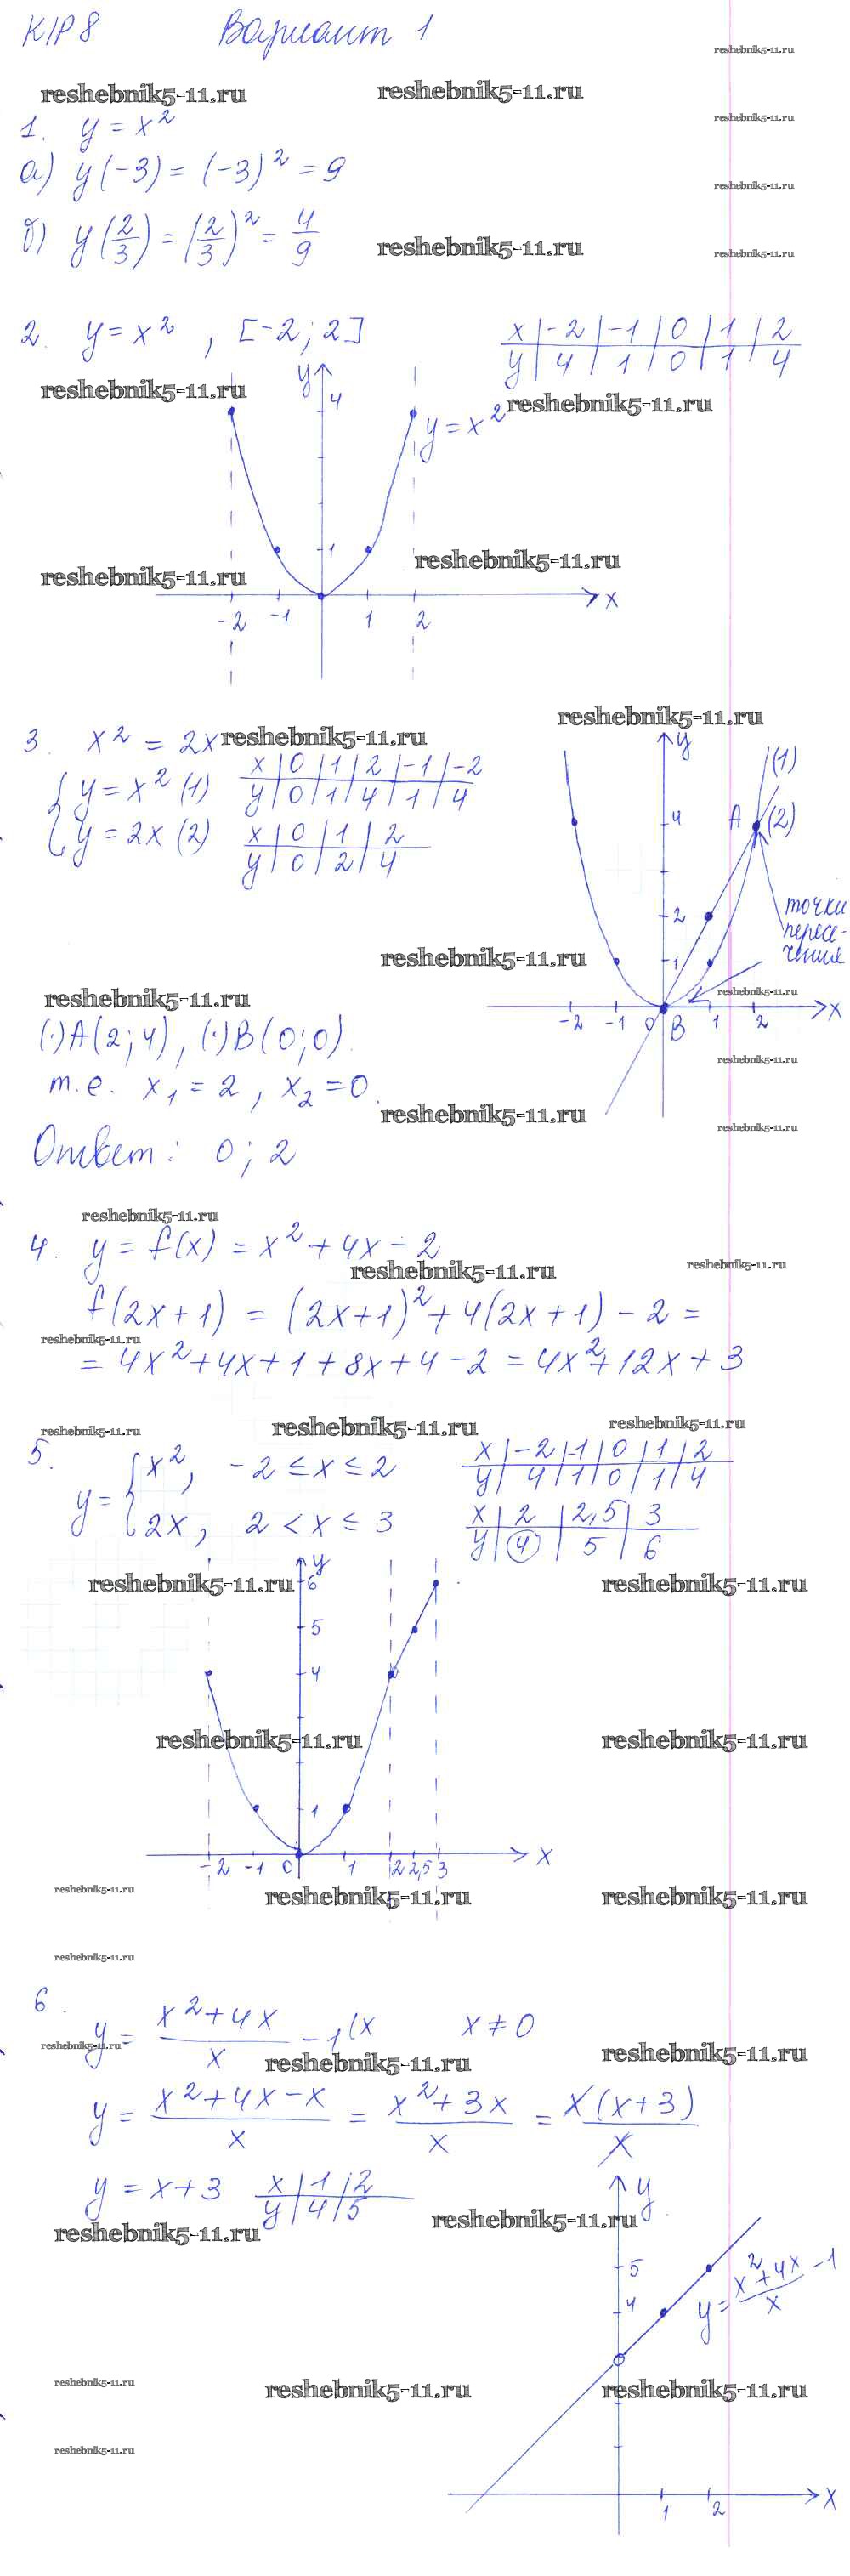 К/Р 8 Вариант 1
reshebnik5-11.ru
reshebnik5-11.ru reshebnik5-11.ru
reshebnik5-11.ru
1. y = x²
а) y(-3) = (-3)² = 9
reshebnik5-11.ru
б) y(2/3) = (2/3)² = 4/9
reshebnik5-11.ru reshebnik5-11.ru
2. y = x² , [-2; 2]
x | -2 | -1 | 0 | 1 | 2
y | 4 | 1 | 0 | 1 | 4
y
reshebnik5-11.ru 4 reshebnik5-11.ru
y = x²
1
reshebnik5-11.ru
reshebnik5-11.ru
x
-2 -1 1 2
reshebnik5-11.ru
3. x² = 2x reshebnik5-11.ru
y
{ y = x² (1)
x | 0 | 1 | 2 | -1 | -2
y | 0 | 1 | 4 | 1 | 4
(1)
y = 2x (2)
x | 0 | 1 | 2
y | 0 | 2 | 4
4 A (2)
2
точки
пересе-
чения
1
reshebnik5-11.ru
reshebnik5-11.ru reshebnik5-11.ru
x
-2 -1 0 B 1 2
(·)A(2; 4), (·)B(0; 0).
reshebnik5-11.ru
т.е. x₁ = 2, x₂ = 0.
reshebnik5-11.ru
reshebnik5-11.ru
Ответ: 0; 2
reshebnik5-11.ru
4. y = f(x) = x² + 4x - 2
reshebnik5-11.ru reshebnik5-11.ru
f(2x+1) = (2x+1)² + 4(2x+1) - 2 =
reshebnik5-11.ru
= 4x² + 4x + 1 + 8x + 4 - 2 = 4x² + 12x + 3
reshebnik5-11.ru reshebnik5-11.ru reshebnik5-11.ru
5. y = { x², -2 ≤ x ≤ 2
2x, 2 < x ≤ 3
x | -2 | -1 | 0 | 1 | 2
y | 4 | 1 | 0 | 1 | 4
x | 2 | 2,5 | 3
y | 4 | 5 | 6
y
reshebnik5-11.ru 6 reshebnik5-11.ru
5
4
reshebnik5-11.ru reshebnik5-11.ru
1
x
-2 -1 0 1 2 2,5 3
reshebnik5-11.ru reshebnik5-11.ru reshebnik5-11.ru
reshebnik5-11.ru
6. y = (x² + 4x)/x - 1(x x ≠ 0
reshebnik5-11.ru reshebnik5-11.ru reshebnik5-11.ru
y = (x² + 4x - x)/x = (x² + 3x)/x = x(x+3)/x
y = x + 3
x | 1 | 2
y | 4 | 5
y
reshebnik5-11.ru reshebnik5-11.ru
5
4
y = (x² + 4x)/x - 1
reshebnik5-11.ru reshebnik5-11.ru reshebnik5-11.ru
reshebnik5-11.ru
x
1 2